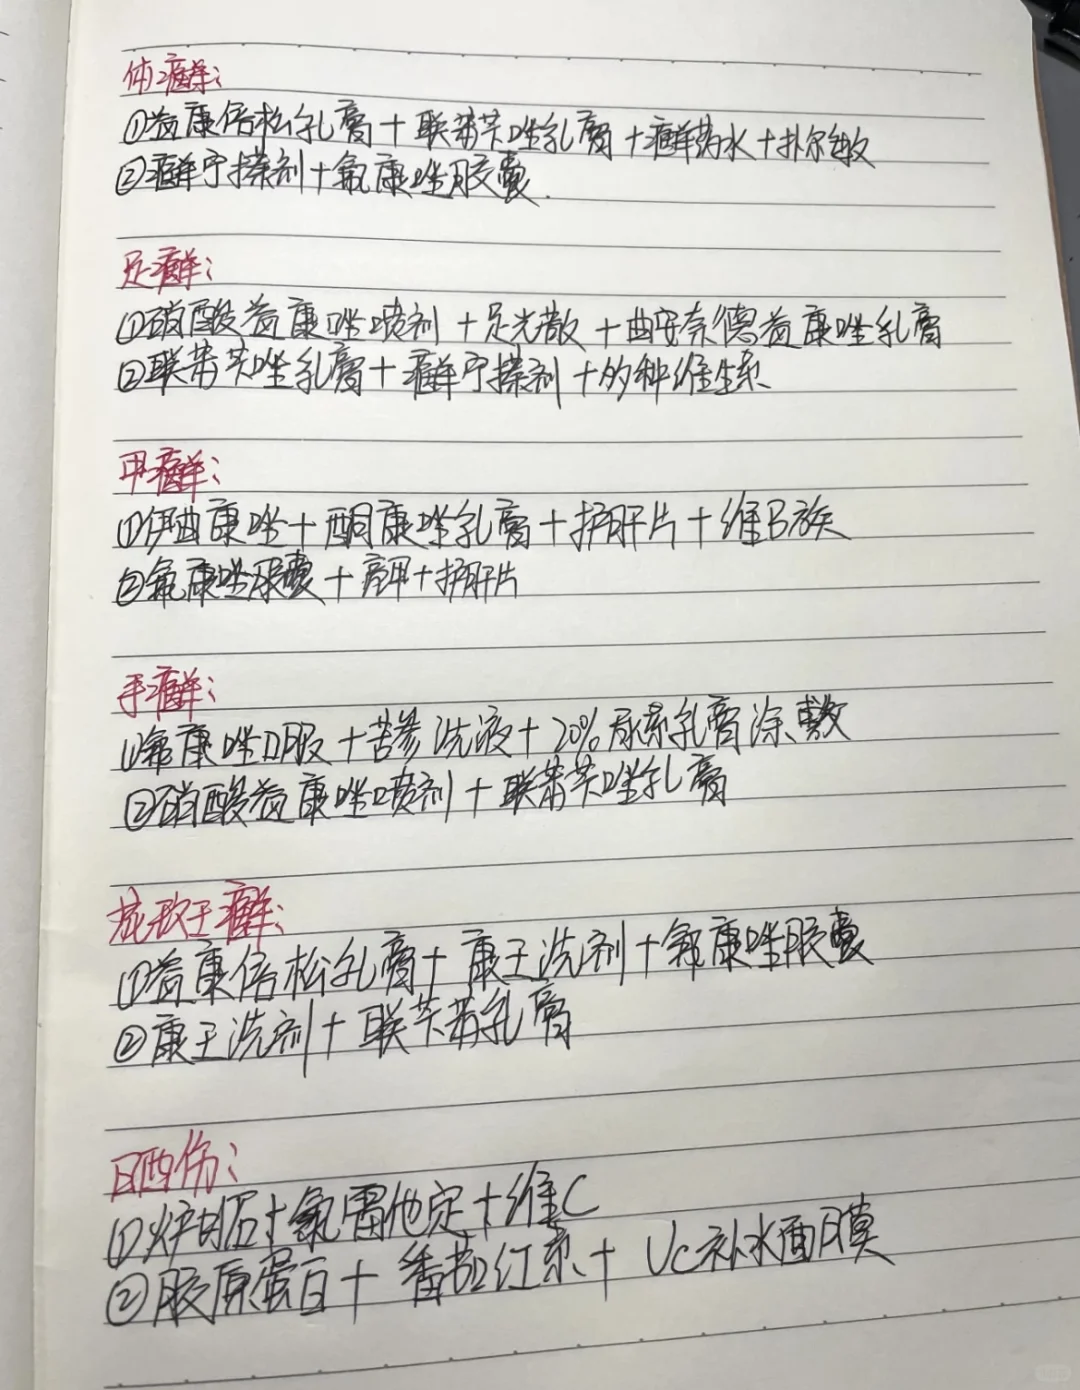 体癣:
①益康倍松乳膏+联苯苄唑乳膏+癣药水+扑尔敏
②癣宁搽剂+氟康唑胶囊.
足癣:
①硝酸益康唑喷剂+足光散+曲安奈德益康唑乳膏
②联苯苄唑乳膏+癣宁搽剂+多种维生素
甲癣:
①伊曲康唑+酮康唑乳膏+护肝片+维B族
②氟康唑胶囊+亮甲+护肝片
手癣:
①氟康唑口服+苦参洗液+20%尿素乳膏涂敷
②硝酸益康唑喷剂+联苯苄唑乳膏
花斑癣:
①益康倍松乳膏+康王洗剂+氟康唑胶囊
②康王洗剂+联苄苯乳膏
日晒伤:
①炉甘石+氯雷他定+维C
②胶原蛋白+番茄红素+Vc补水面膜